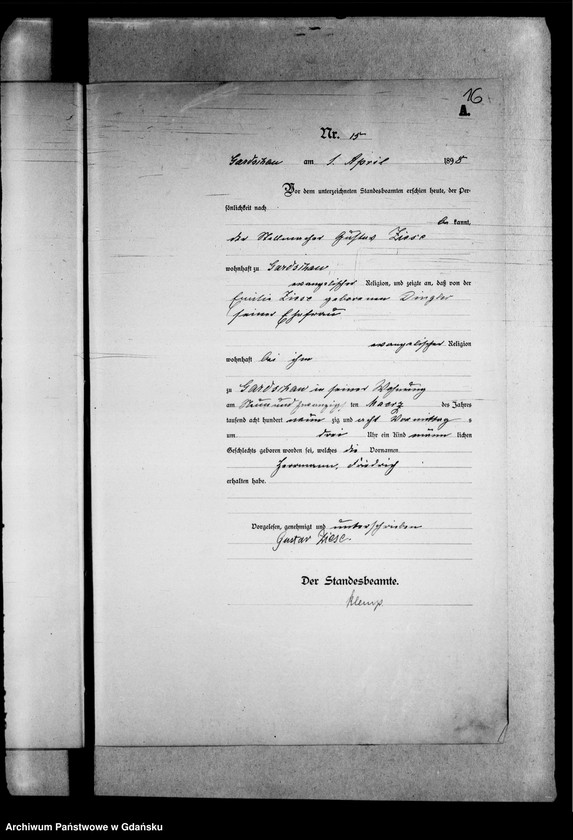 16
A.
Nr. 15
Gardschau am 1. April 1898
Vor dem unterzeichneten Standesbeamten erschien heute, der Per-
sönlichkeit nach
be kannt,
der Stellmacher Gustav Ziese
wohnhaft zu Gardschau
evangelischer Religion, und zeigte an, daß von der
Emilie Ziese geborenen Dingler
seiner Ehefrau
evangelischer Religion
wohnhaft bei ihm
zu Gardschau in seiner Wohnung
am Neunundzwanzigsten Maerz des Jahres
tausend acht hundert neun zig und acht Vormittag s
um drei Uhr ein Kind männ lichen
Geschlechts geboren worden sei, welches die Vornamen
Herrmann, Friedrich
erhalten habe.
Vorgelesen, genehmigt und unterschrieben
Gustav Ziese.
Der Standesbeamte.
Klemp
Archiwum Państwowe w Gdańsku